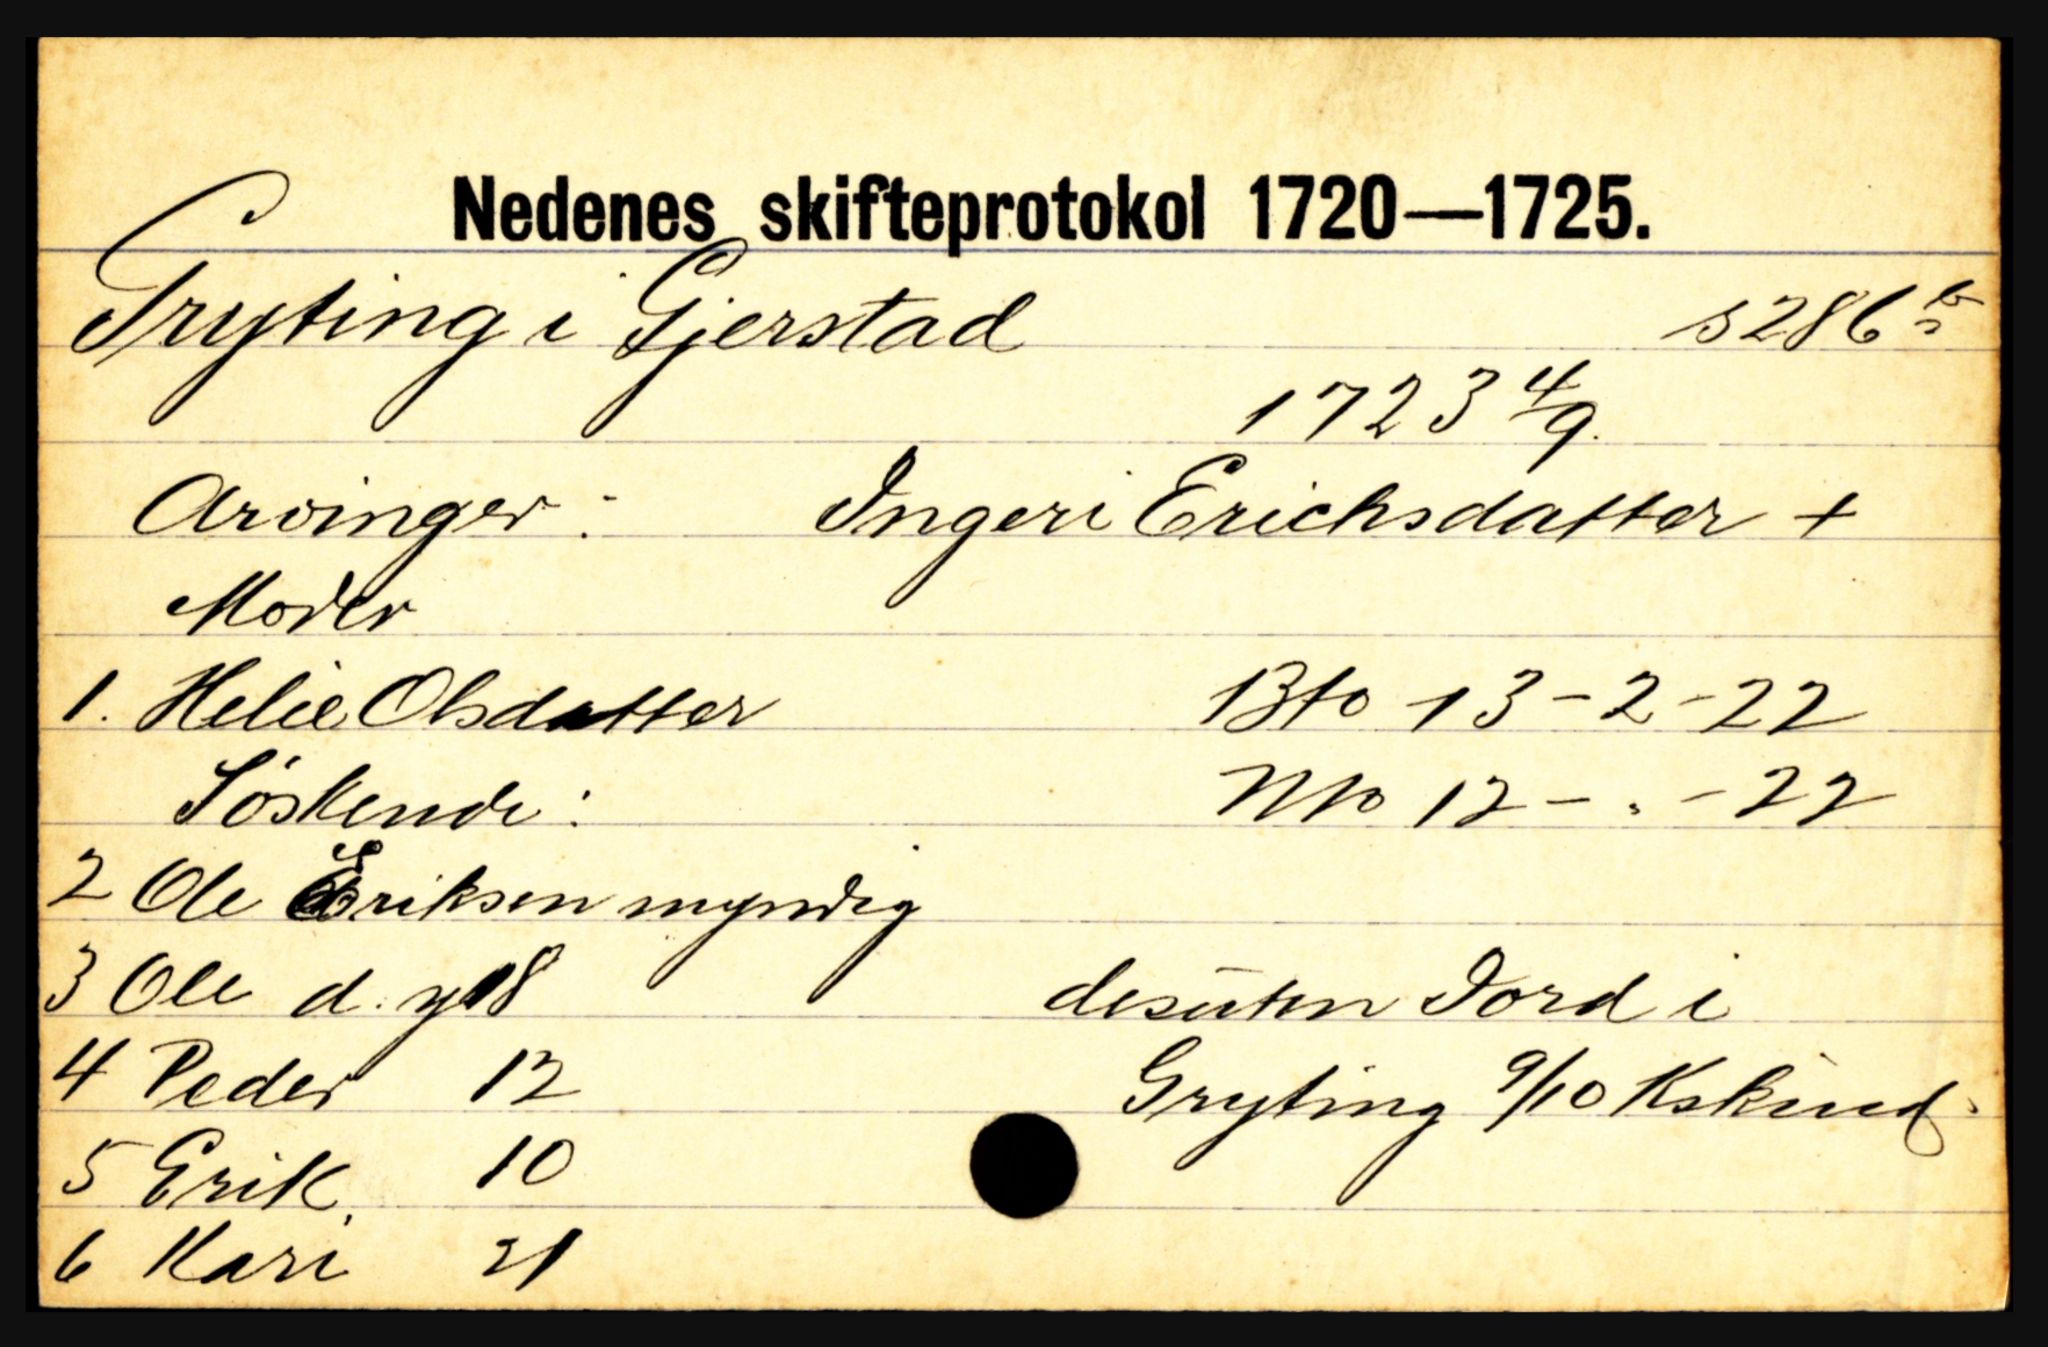 Nedenes skifteprotokol 1720—1725.
Gryting i Gjerstad s 286 b
1723 4/9.
Arvinger: Ingeri Erichsdatter +
Moder
1. Helie Olsdatter Bto 13-2-22
Søskende: Nto 12-"-22
2 Ole Eriksen myndig
3 Ole d. y 18 desuten Jord i
4 Peder 12 Gryting 9/10 Kskind.
5 Erik 10
6 Kari 21